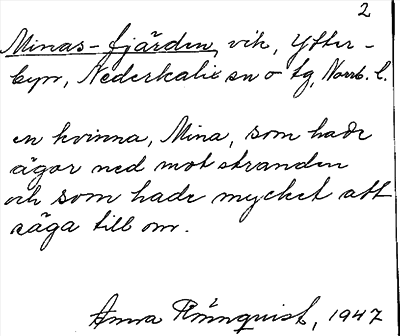 2
Minas-fjärden, vik, Ytter-
byn, Nederkalix sn o tg, Norrb. l.
en kvinna, Mina, som hade
ägor ned mot stranden
och som hade mycket att
säga till om.
Anna Rönnquist, 1947